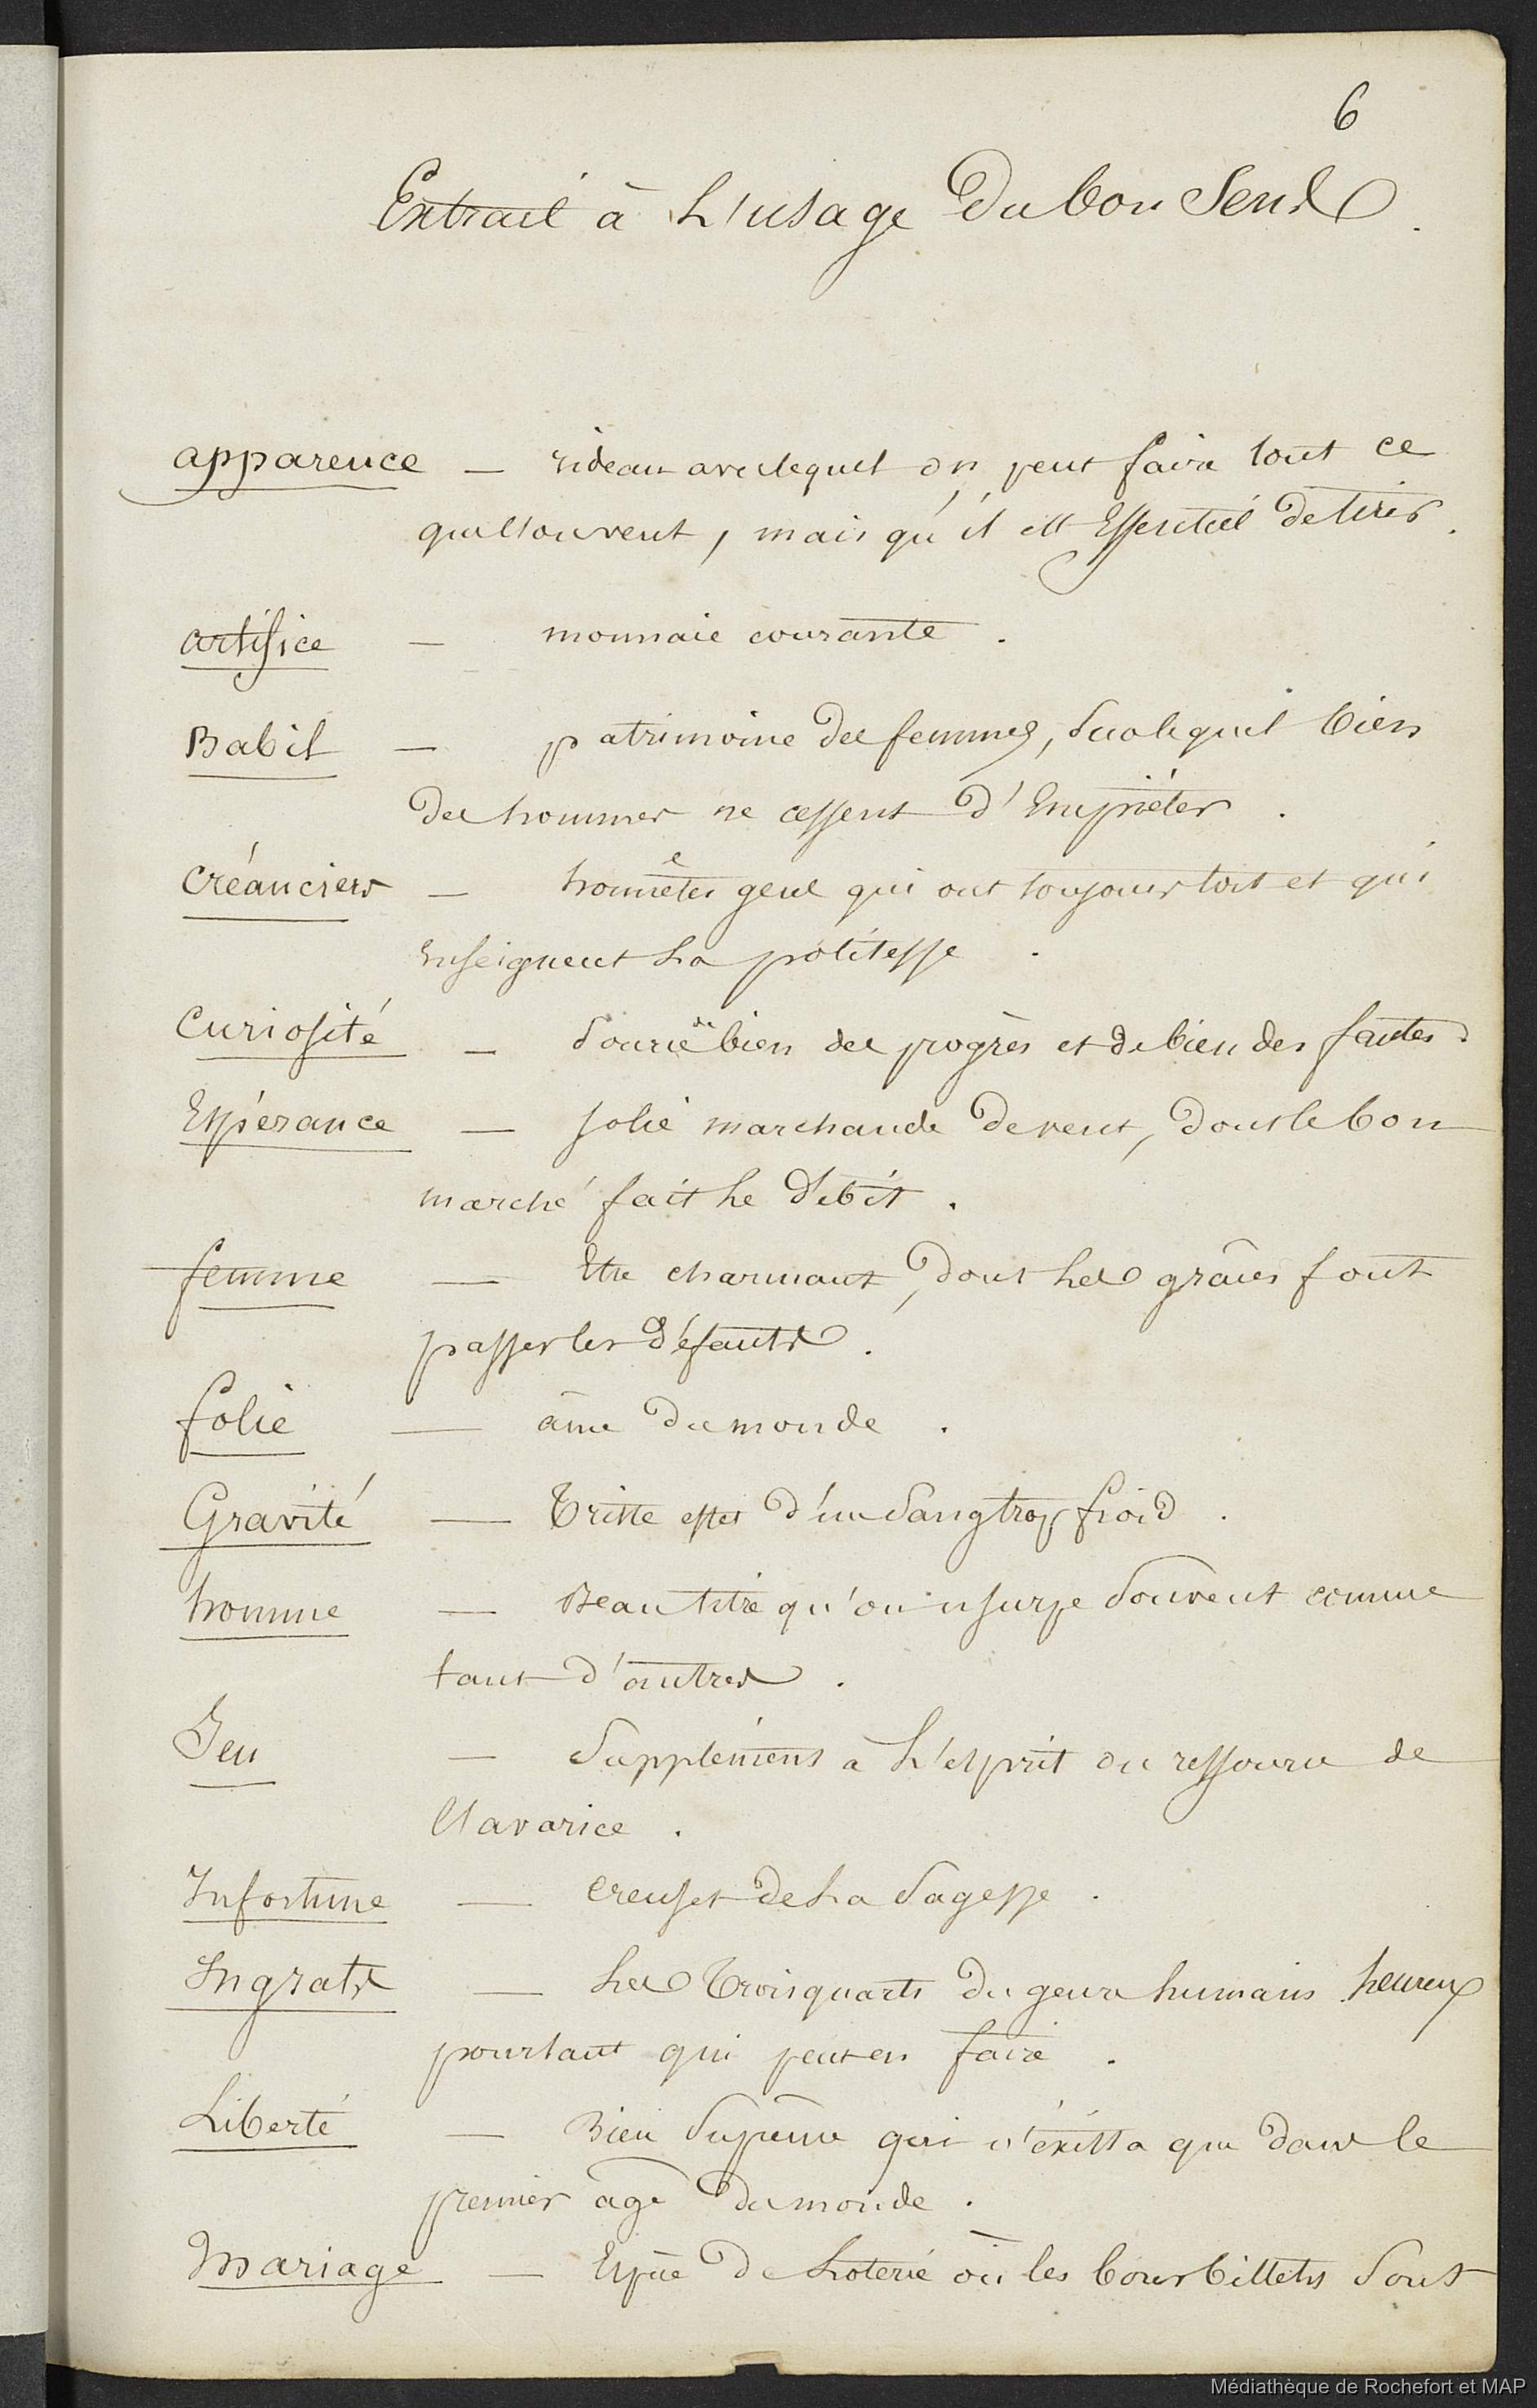 6
Extrait à L'usage Du bon Sens.
apparence — rideau avec lequel on peut faire tout ce
que l'on veut, mais qu'il est Essentiel de tirer.
artifice — monnaie courante.
Babil — patrimoine des femmes, sur lequel bien
des hommes ne cessent d'Empiéter.
Créanciers — honnêtes gens qui ont toujours tort et qui
enseignent La politesse.
Curiosité — Source de bien des progrès et de bien des fautes.
Espérance — Jolie marchande de vent, dont le bon
marché fait Le débit.
femme — Etre charmant, dont Les grâces font
passer les défauts.
folie — âme du monde.
Gravité — Triste effet d'un Sang trop froid.
homme — Beau titre qu'on usurpe Souvent comme
tant d'autres.
Jeu — Supplément à L'esprit ou ressource de
l'avarice.
Infortune — creuset de La Sagesse.
Ingrats — Les Trois quarts du genre humain heureux
pourtant qui peut en faire.
Liberté — Bien Suprême qui n'éxista que dans le
premier âge du monde.
Mariage — Espèce de Loterie où les bons billets Sont
Médiathèque de Rochefort et MAP